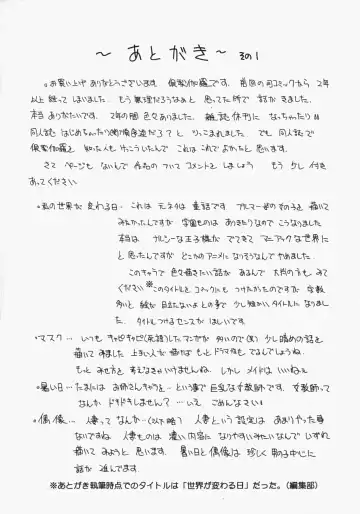 ～あとがき～ その1
。お買い上げありがとうございます 傀儡伽羅です。前回の同コミックから2年
以上経ってしまいました。もう無理だろうなぁと思ってた所で話がきました。
本当ありがたいです。2年の間色々ありました。雑誌休刊になっちゃったり
同人誌はじめちゃったり とつっこまれました。でも同人誌で
を知った人もけっこういたんで これはこれでよかったと思います。
さて ページもないんで 作品のついてコメントをしましょう もう少し付き
あってください
・私の世界が変わる日・これは元ネタは童話です ブルマー姿の女の子を描いて
みたかったんですが 学園ものはありきたりなのでこうなりました
本当は な王子様がでてきてマニアックな世界に
と思ったんですが どこかのアニメになりそうなんでやめました。
このキャラで色々描きたい話があるんで 大判の方も みて
ください※このタイトルをコミックにもつけたかったのですが 字数
多いと絵が目立たないよとの事で少し短かいタイトルになりまし
た。タイトルつけるセンスがほしいです。
・マスク・・・いつもキャピキャピ(死語)したマンガが多いので(笑)少し暗めの話を
描いてきました 上手い人が描けばもっとドラマ性もでるんでしょうね。
もっとみせ方を考えなきゃいけませんね。しかしメイドはいいねぇ
・暑い日・・・たまにはお姉さんキャラを・・・という事で巨乳な女教師です。女教師って
なんかドキドキしません？・・・いえ ごめんなさい
・偶像・・・人妻ってなんか・・・(以下略) 人妻という設定はあまりやった事
ないですね 人妻ものは濃い内容になりやすいみたいなんでいずれ
描いてみようと思います。暑い日と偶像は珍しく男を中心に
話が進んでます。
※あとがき執筆時点でのタイトルは「世界が変わる日」だった。（編集部）